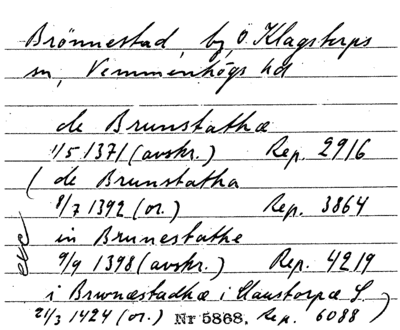 Brönnestad, by, Ö. Klagstorps
sn, Vemmenhögs hd
de Brunstathæ
1/5 1371 (avskr.) Rep. 2916
( de Brunstatha
8/7 1392 (or.) Rep. 3864
in Brunestathe
9/9 1398 (avskr.) Rep. 4219
i Brwnæstadhæ i Claustorpæ S.
21/3 1424 (or.) Nr 5868, Rep. 6088 )